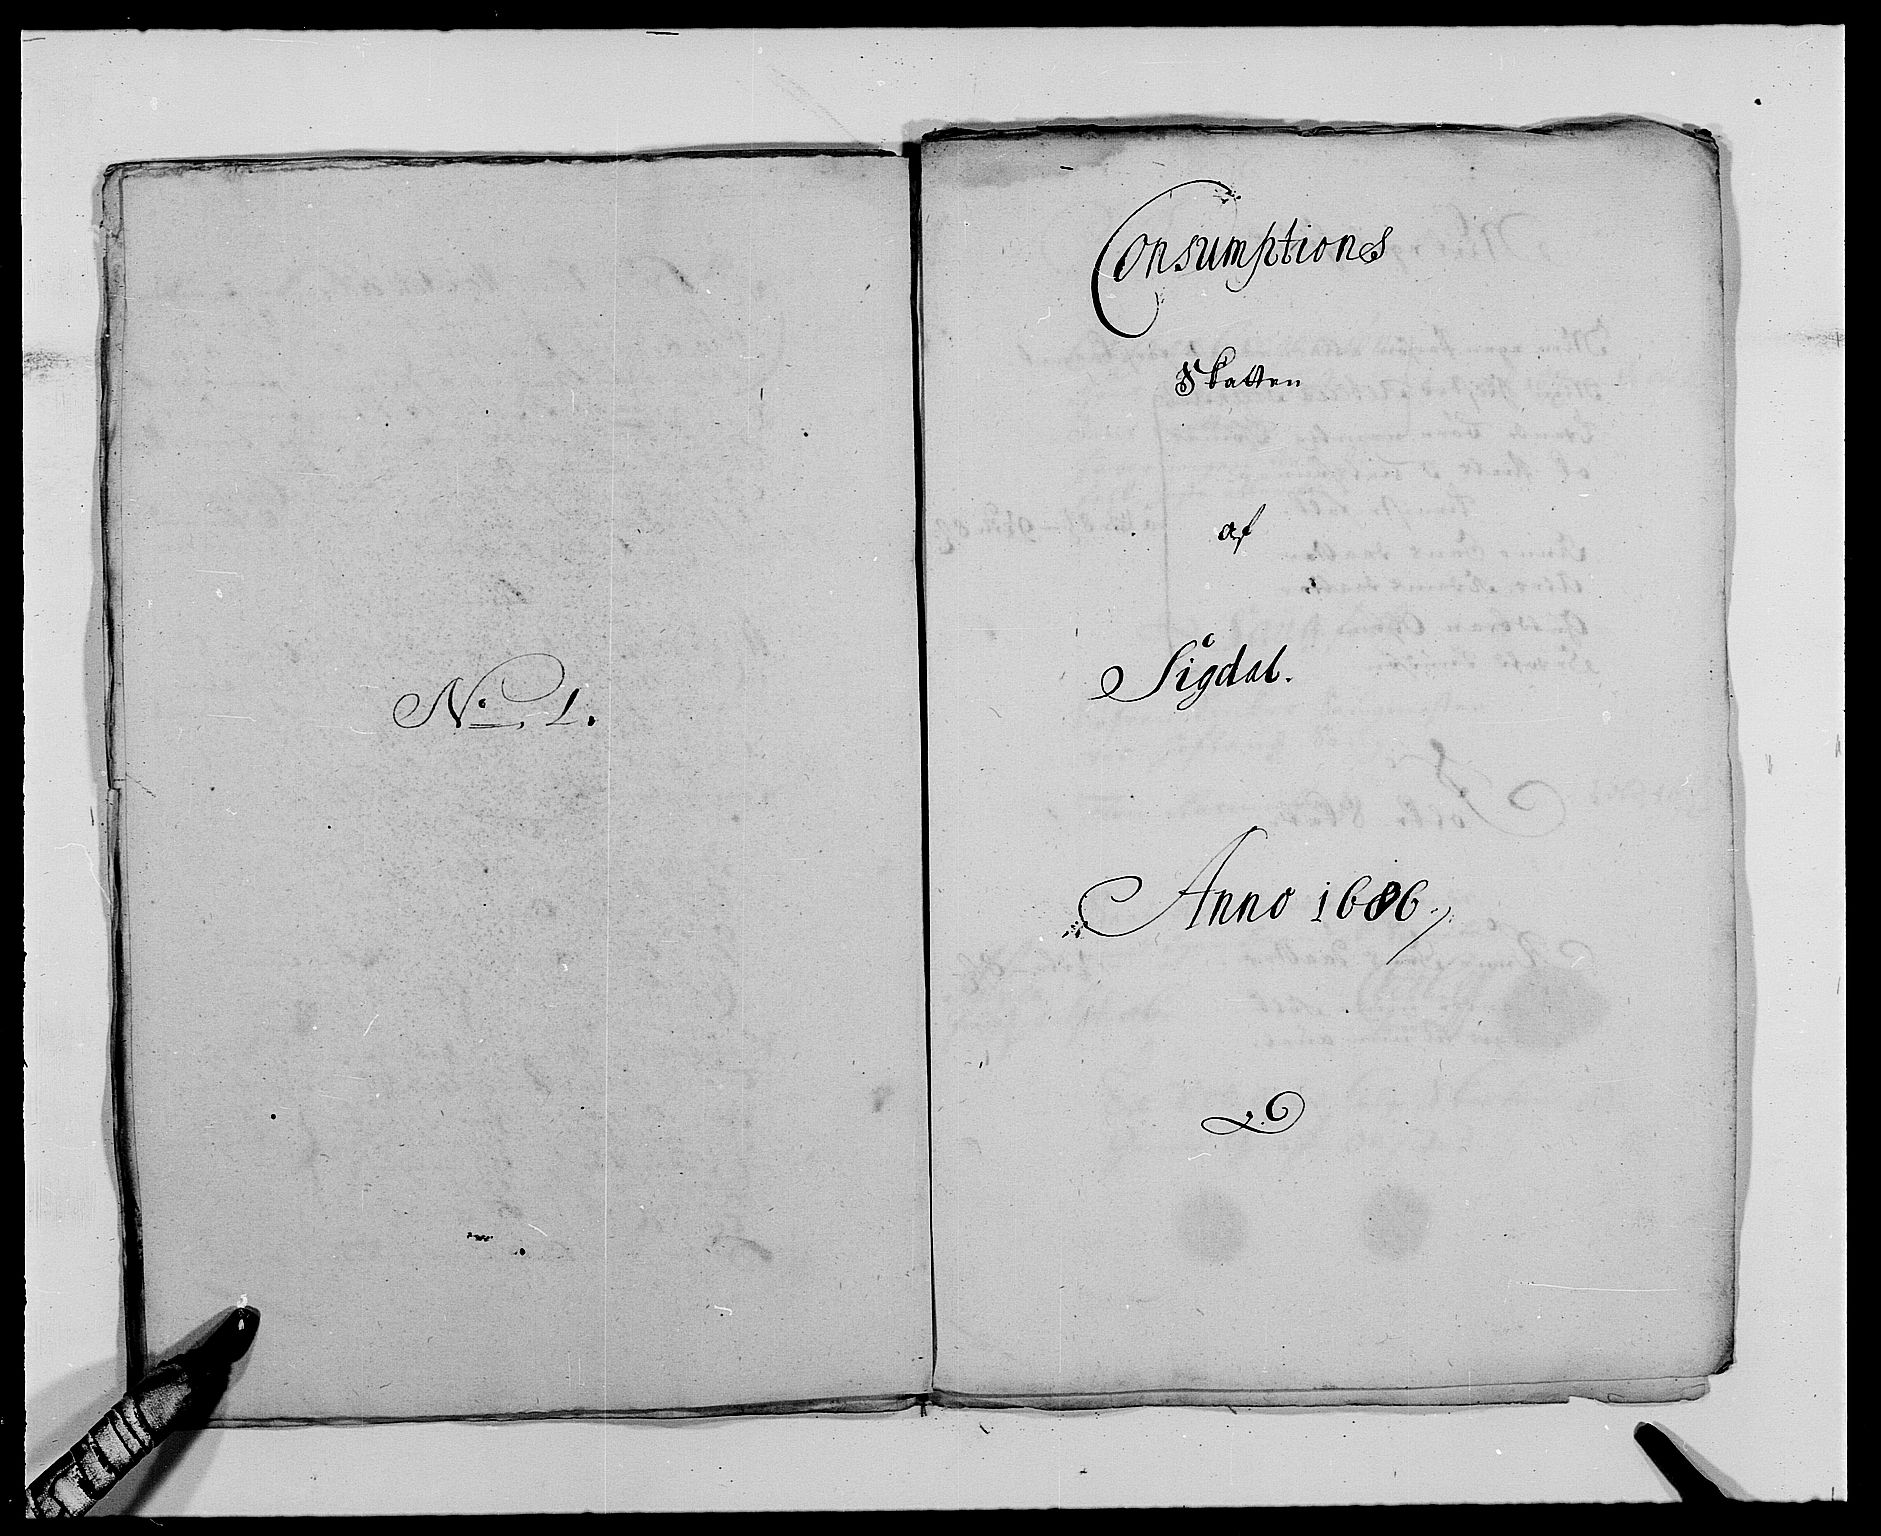 No. 1.
Consumptions
Skatten
af
Sigdal.
Anno 1686.